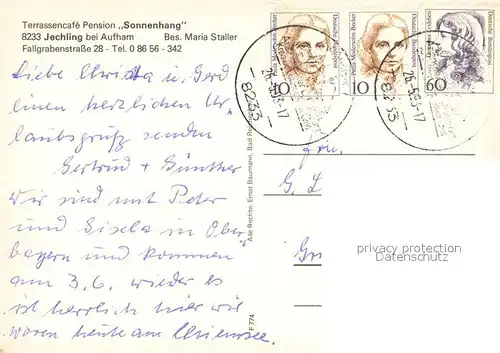 Terrassencafé Pension „Sonnenhang"
8233 Jechling bei Aufham Bes. Maria Staller
Fallgrabenstraße 28 - Tel. 0 86 56 - 342
Liebe Christa u. Gerd
einen herzlichen Ur-
laubsgruß senden
Gertrud + Günther
Wir sind mit Peter
und Gisela in Ober
bayern und kommen
am 3.6. wieder es
ist herrlich hier wir
waren heute am Chiemsee.
Alle Rechte: Ernst Baumann, Bad
F 774
Paula Modersohn-Becker
Deutsche Bundespost
10
Paula Modersohn-Becker
Deutsche Bundespost
10
Deutsche Bundespost
60
8233
8233
G. L
privacy protection
Gri